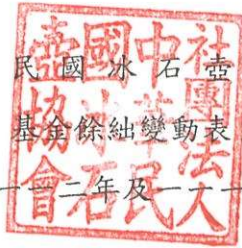 民國冰石壺
基金餘絀變動表
一一二年及一一一
社團法人
中華民
國冰石
壺協會